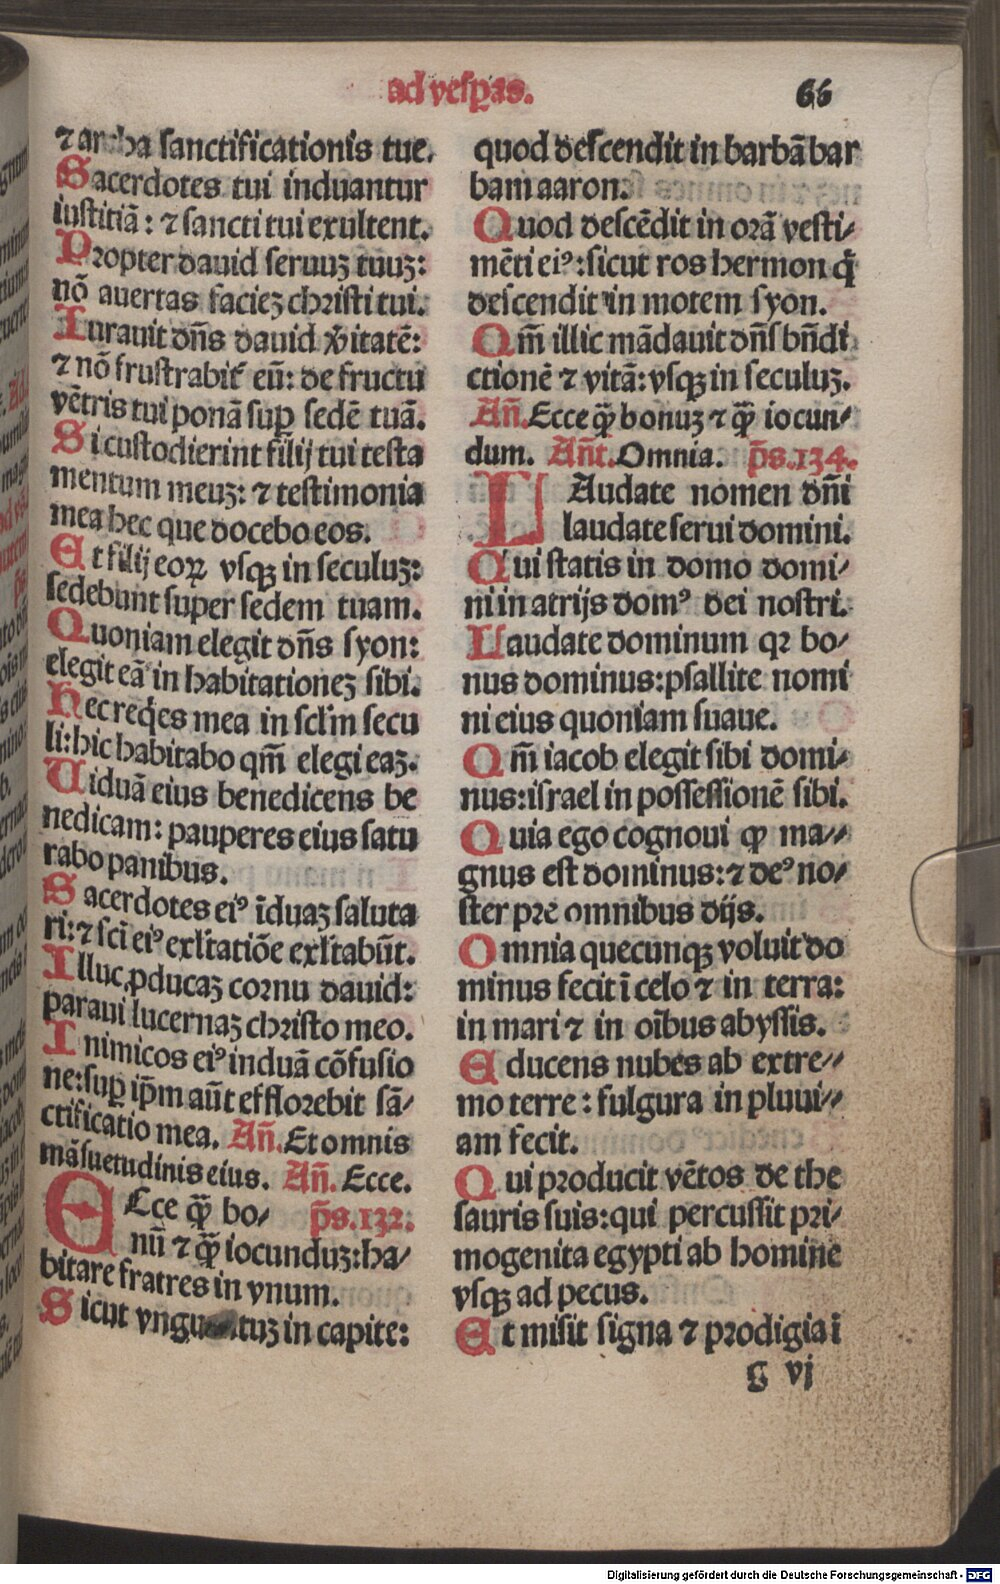 ad vesꝑas.
66
⁊ archa sanctificationis tue.
Sacerdotes tui induantur
iustitiã: ⁊ sancti tui exultent.
Propter dauid seruuʒ tuuʒ:
nõ auertas facieʒ christi tui.
Iurauit dñs dauid v̾itatẽ:
⁊ nõ frustrabit̃ eũ: de fructu
vẽtris tui ponã suꝑ sedẽ tuã.
Si custodierint filij tui testa
mentum meuʒ: ⁊ testimonia
mea hec que docebo eos.
Et filij eoꝝ vsqʒ in seculuʒ:
sedebunt super sedem tuam.
Quoniam elegit dñs syon:
elegit eã in habitationeʒ sibi.
Hec reqͥes mea in scl̃m secu
li: hic habitabo qm̃ elegi eaʒ.
Viduã eius benedicens be
nedicam: pauperes eius satu
rabo panibus.
Sacerdotes eiꝰ ĩduaʒ saluta
ri: ⁊ sc̃i eiꝰ exl̃tatiõe exl̃tabũt.
Illuc ꝓducaʒ cornu dauid:
paraui lucernaʒ christo meo.
Inimicos eiꝰ induã cõfusio
ne: suꝑ ip̃m aũt efflorebit sã/
ctificatio mea. Añ. Et omnis
mãsuetudinis eius. Añ. Ecce.
Ecce q̃ bo/ p̃s.132.
nũ ⁊ q̃ iocunduʒ: ha/
bitare fratres in vnum.
Sicut vngu tuʒ in capite:
quod descendit in barbã bar
bam aaron.
Quod descẽdit in orã vesti/
mẽti eiꝰ: sicut ros hermon q̃
descendit in motem syon.
Qm̃ illic mãdauit dñs bñdi
ctionẽ ⁊ vitã: vsqʒ in seculuʒ.
Añ. Ecce q̃ bonuʒ ⁊ q̃ iocun/
dum. Añt. Omnia. p̃s.134.
LAudate nomen dñi
laudate serui domini.
Qui statis in domo domi/
ni in atrijs domꝰ dei nostri.
Laudate dominum qꝛ bo/
nus dominus: psallite nomi
ni eius quoniam suaue.
Qm̃ iacob elegit sibi domi/
nus: israel in possessionẽ sibi.
Quia ego cognoui ꝙ ma//
gnus est dominus: ⁊ deꝰ no/
ster pre omnibus dijs.
Omnia quecunqʒ voluit do
minus fecit ĩ celo ⁊ in terra:
in mari ⁊ in oĩbus abyssis.
Educens nubes ab extre//
mo terre: fulgura in pluui//
am fecit.
Qui producit vẽtos de the
sauris suis: qui percussit pri/
mogenita egypti ab homine
vsqʒ ad pecus.
Et misit signa ⁊ prodigia ĩ
G vj
Digitalisierung gefördert durch die Deutsche Forschungsgemeinschaft - DFG